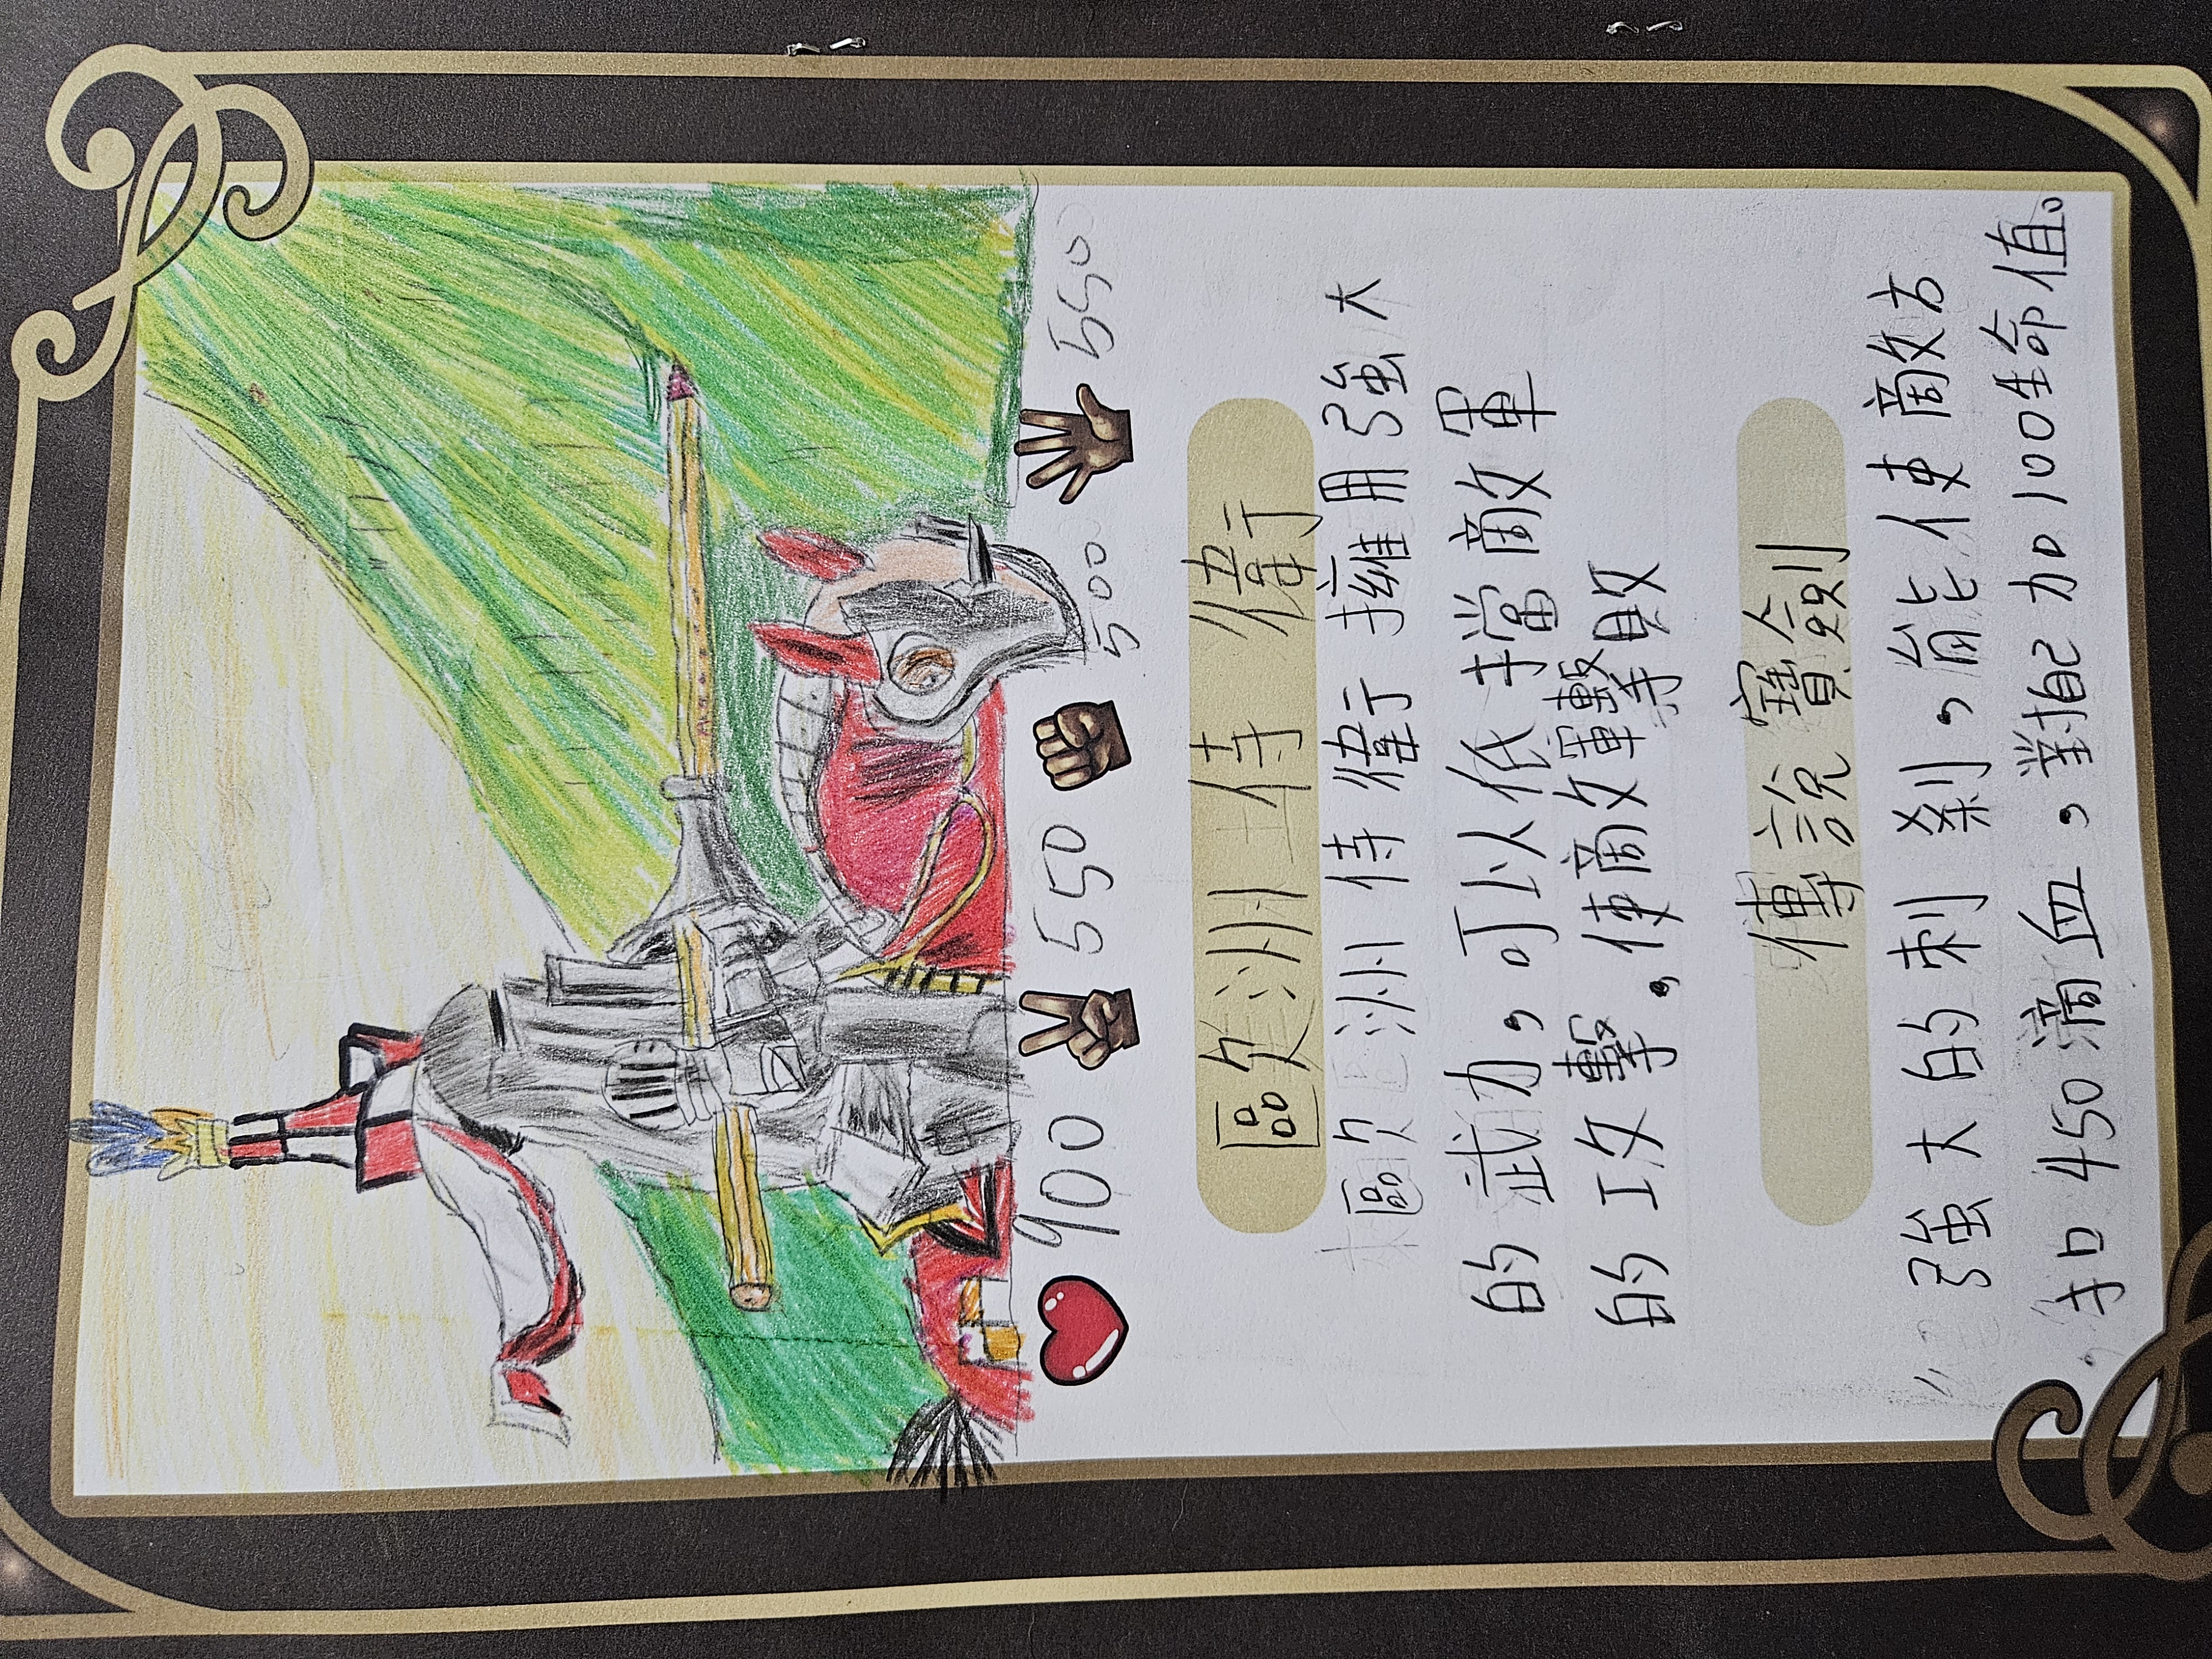 900 550 500 550
歐洲侍衛
歐洲侍衛擁用強大
的武力，可以低擋敵軍
的攻擊，使敵軍擊敗
傳說寶劍
強大的刺剎，能使敵方
扣450滴血，對自己加100生命值。